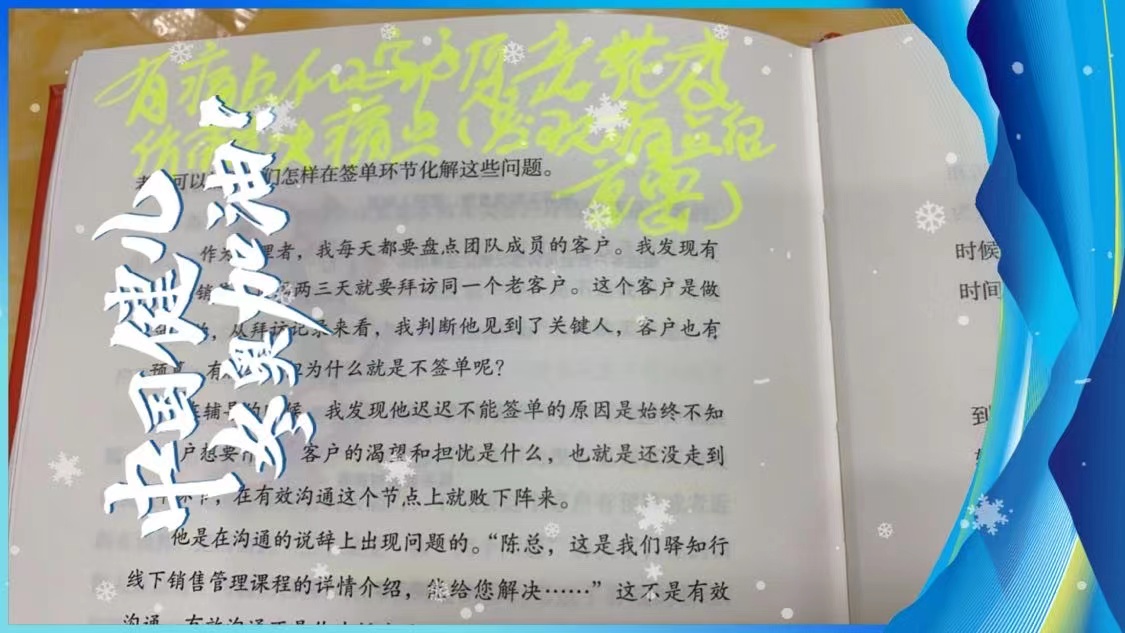 有痛点和客户愿意花
价决痛点（发现痛点很
重要）
中国健儿
冬奥加油！
可以们怎样在签单环节化解这些问题。
作为理者，我每天都要盘点团队成员的客户。我发现有
销两三天就要拜访同一个老客户。这个客户是做
，从拜访记录来看，我判断他见到了关键人，客户也有
预算，有为什么就是不签单呢？
辅导的时候，我发现他迟迟不能签单的原因是始终不知
户想要什客户的渴望和担忧是什么，也就是还没走到
，在有效沟通这个节点上就败下阵来。
他是在沟通的说辞上出现问题的。“陈总，这是我们驿知行
线下销售管理课程的详情介绍，能给您解决……”这不是有效
沟通，有效沟通不是
时候
时间
到